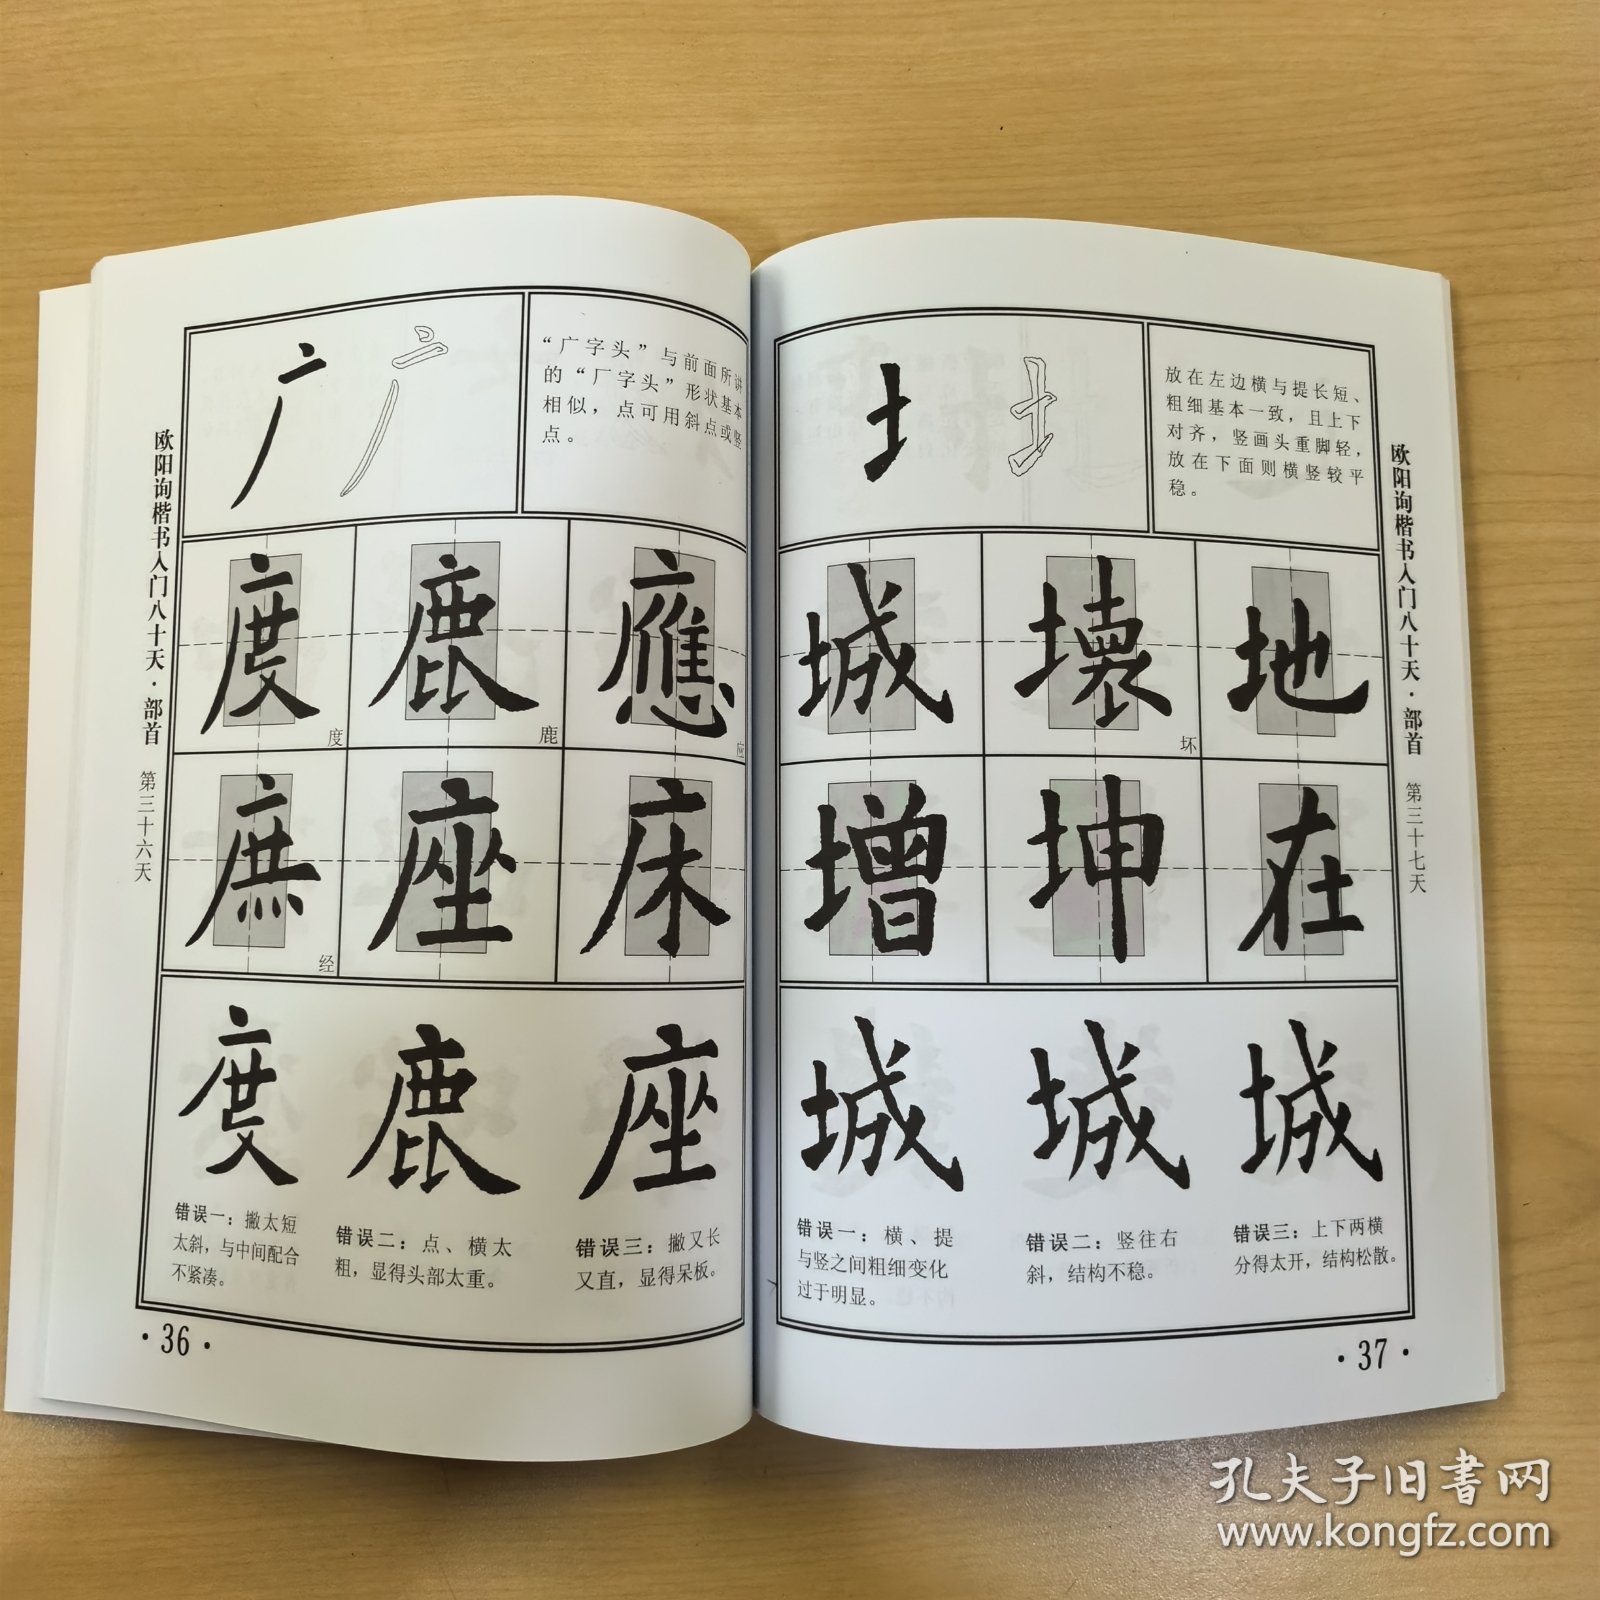 欧阳询楷书入门八十天·部首 第三十六天
广 广
“广字头”与前面所讲
的“厂字头”形状基本
相似，点可用斜点或竖
点。
度 鹿 應
度 鹿 应
庶 座 床
经
度 鹿 座
错误一：撇太短
太斜，与中间配合
不紧凑。
错误二：点、横太
粗，显得头部太重。
错误三：撇又长
又直，显得呆板。
·36·
土 土
放在左边横与提长短、
粗细基本一致，且上下
对齐，竖画头重脚轻，
放在下面则横竖较平
稳。
城 壞 地
坏
增 坤 在
城 城 城
错误一：横、提
与竖之间粗细变化
过于明显。
错误二：竖往右
斜，结构不稳。
错误三：上下两横
分得太开，结构松散。
欧阳询楷书入门八十天·部首 第三十七天
·37·
孔夫子旧书网
www.kongfz.com